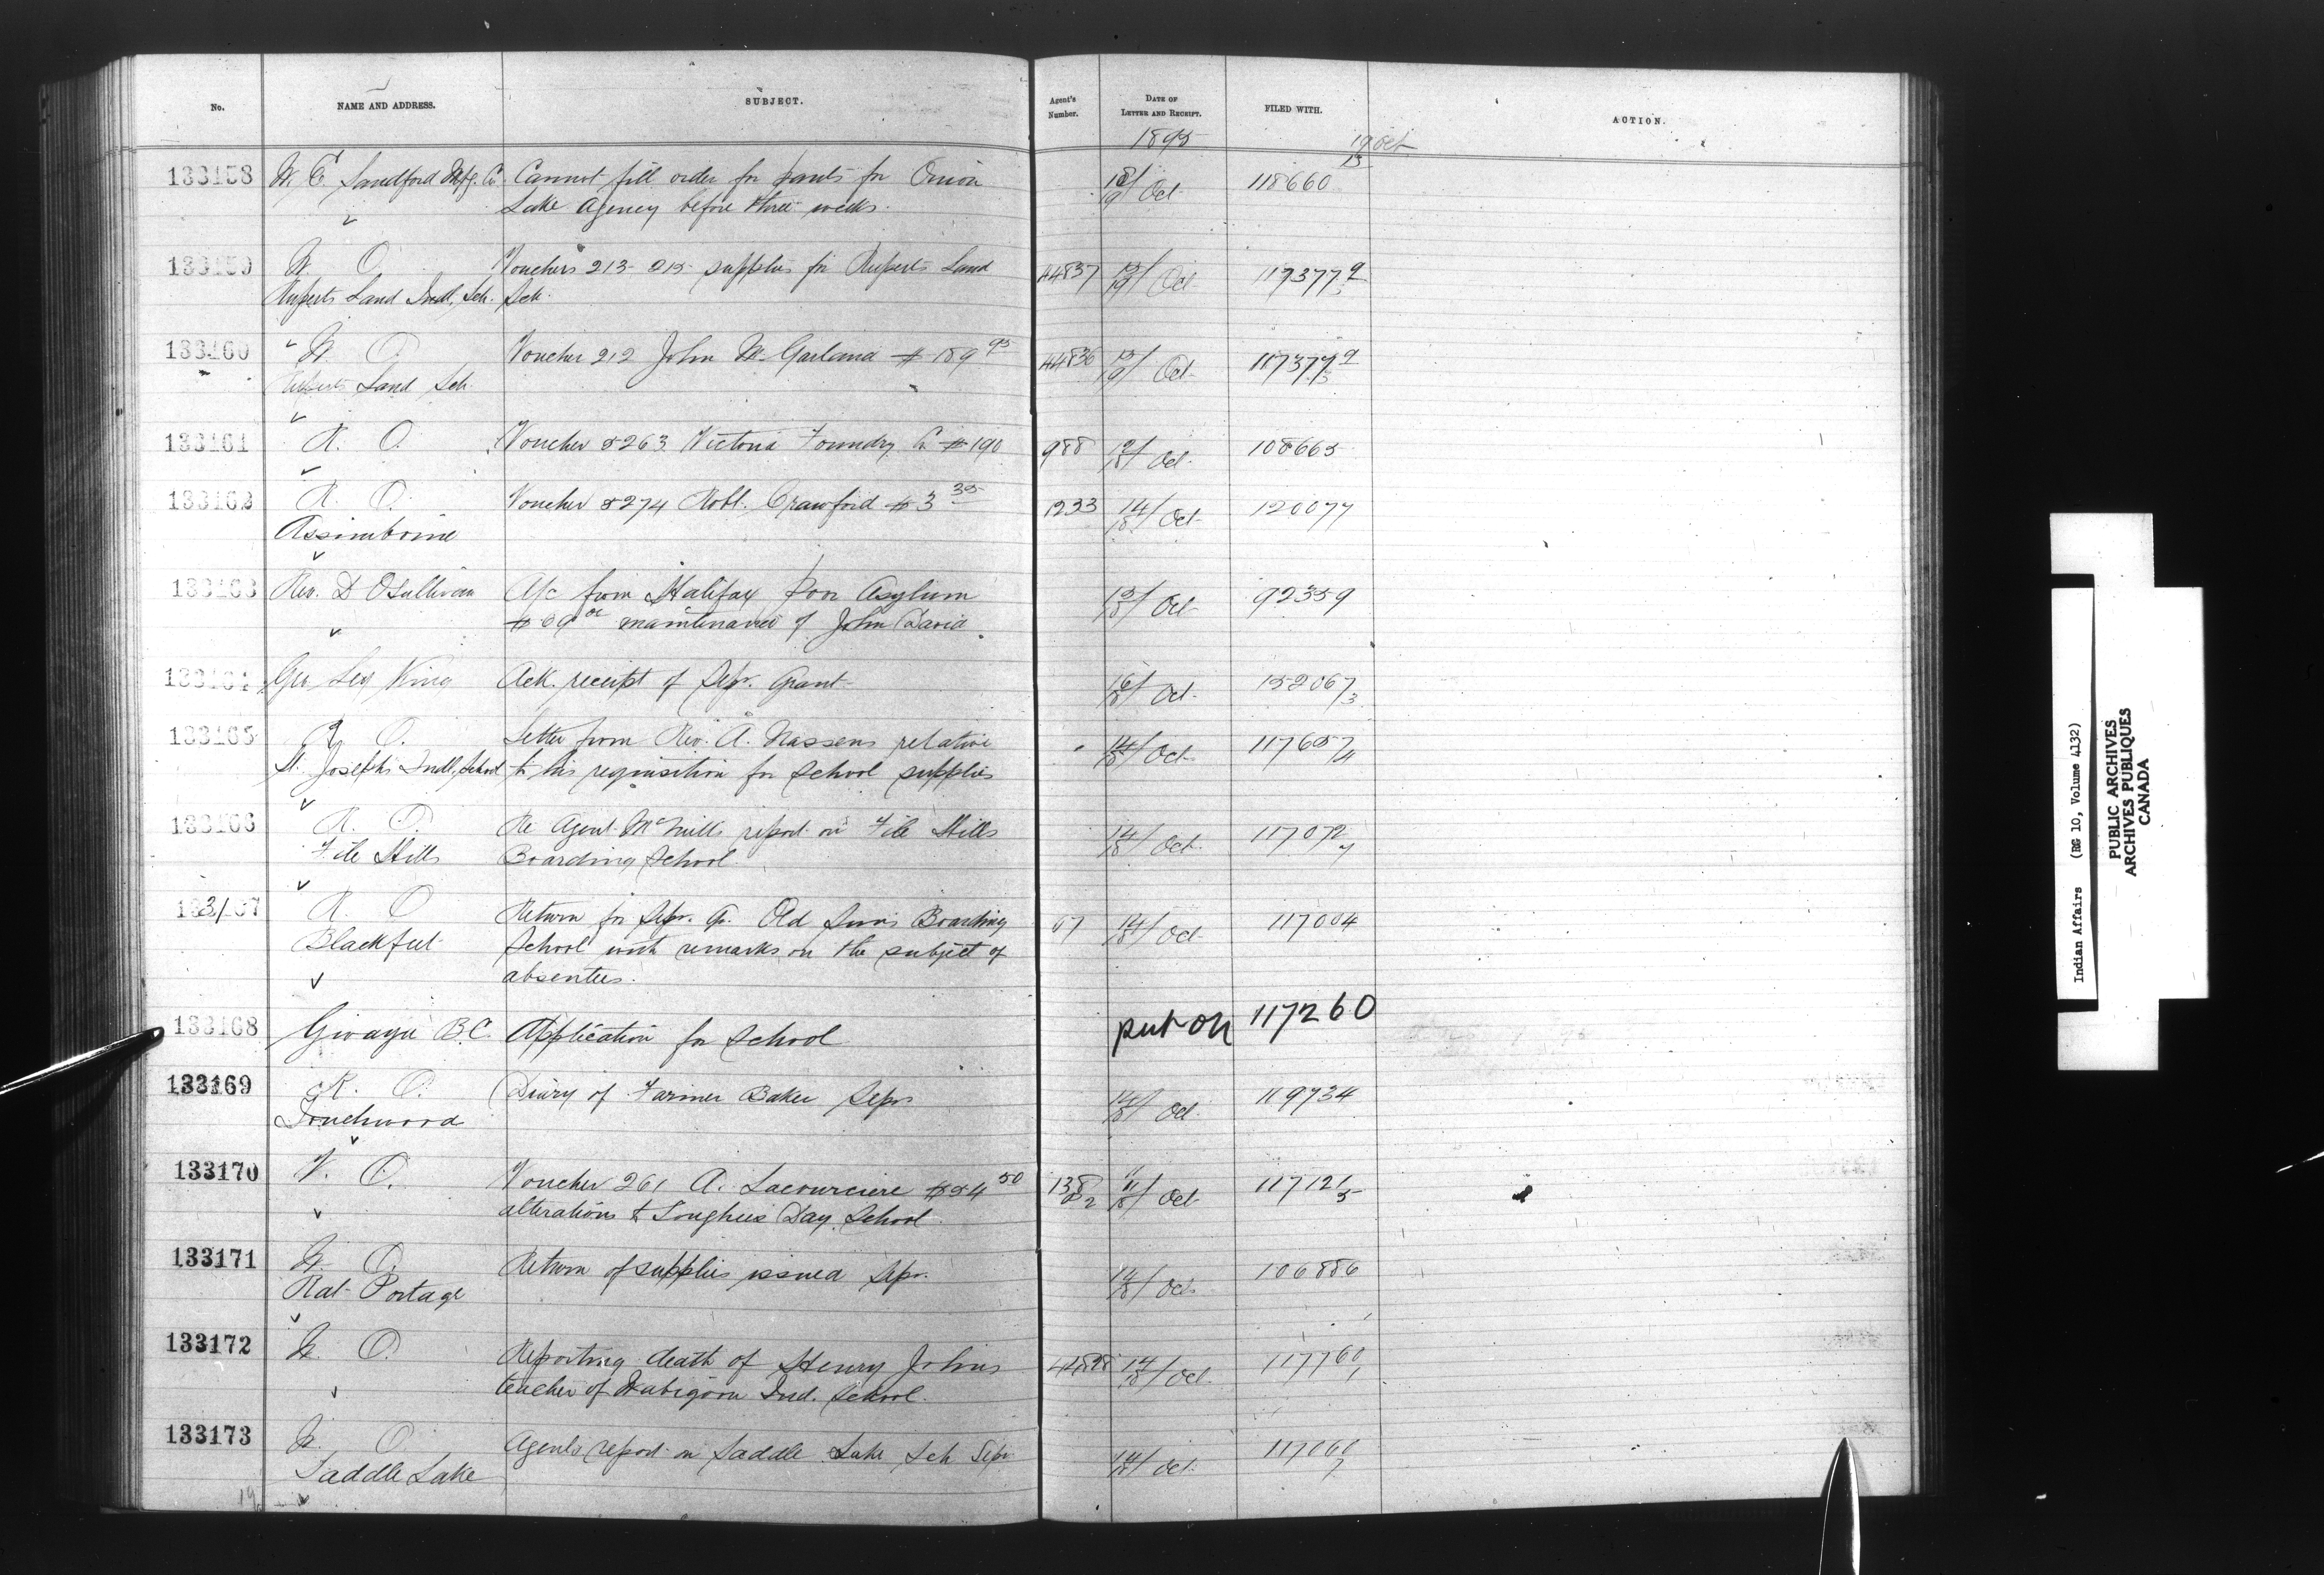 No. NAME AND ADDRESS. SUBJECT. Agent's Number. DATE OF LETTER AND RECEIPT. FILED WITH. ACTION.
1895 19 Oct
133158 W. E. Sandford Mfg. Co. Cannot fill order for pants for Onion 18/19 Oct 118660
Lake Agency before three weeks.
133159 W. O. Vouchers 213-215 supplies for Ruperts Land 44837 15/19 Oct 117377
Ruperts Land Indl. Sch. Sch.
133160 W. O. Voucher 212 John M. Garland $189 95 44836 15/19 Oct 117377
Ruperts Land Sch.
133161 R. O. Voucher 5263 Victoria Foundry Co $190 988 12/18 Oct 108665
133162 R. O. Voucher 5274 Robt. Crawford $3 35 1233 14/18 Oct 120077
Assiniboine
133163 Rev. D OSullivan A/c from Halifax Poor Asylum 15/18 Oct 92359
maintenance of John David
133164 Geo Ley King Ack. receipt of Sepr. Grant 16/18 Oct 152067/3
133165 R. O. Letter from Rev. A. Nassens relative 14/18 Oct 117657/4
St. Josephs Indl, School to his requisition for School supplies
133166 R. O. Re Agent McNeill's report on File Hills 14/18 Oct 117072
File Hills Boarding School
133167 R. O. Return for Sepr. Qr. Old Suns Boarding 67 14/18 Oct 117004
Blackfeet School with remarks on the subject of
absentees.
133168 Gwayu B.C. Application for School put on 117260
133169 R. O. Diary of Farmer Baker Sepr 14/18 Oct 119734
Touchwood
133170 V. O. Voucher 261 A. Lacourciere $54 50 138/2 11/18 Oct 117121/5
alterations to Songhees Day School
133171 W. O. Return of supplies issued Sepr. 14/18 Oct 106886
Rat Portage
133172 W. O. Reporting death of Henry Johns 44898 14/18 Oct 117760/1
teacher of Wabigoon Ind. School.
133173 W. O. Agents report on Saddle Lake Sch Sepr 14/18 Oct 117060/7
Saddle Lake
Indian Affairs (RG 10, Volume 4132)
PUBLIC ARCHIVES
ARCHIVES PUBLIQUES
CANADA